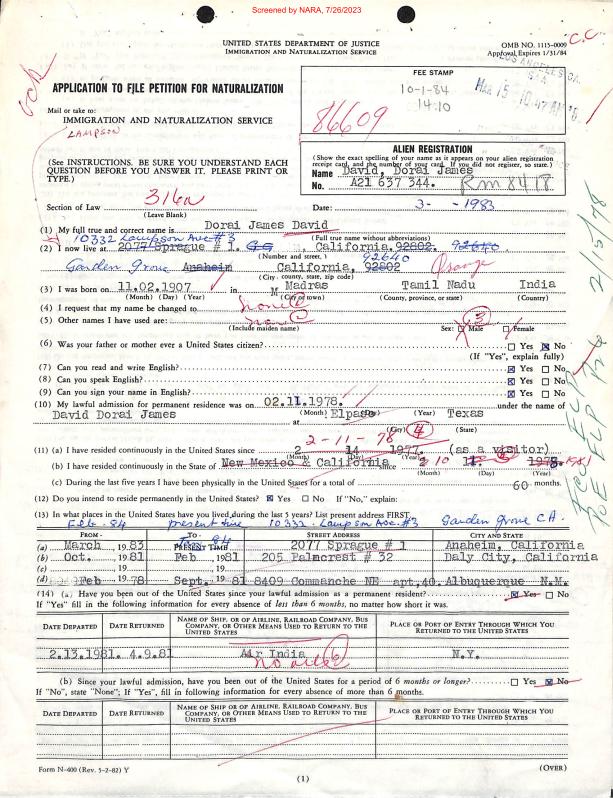 Screened by NARA, 7/26/2023
C.C.
UNITED STATES DEPARTMENT OF JUSTICE
IMMIGRATION AND NATURALIZATION SERVICE
OMB NO. 1115-0009
Approval Expires 1/31/84
APPLICATION TO FILE PETITION FOR NATURALIZATION
Mail or take to:
IMMIGRATION AND NATURALIZATION SERVICE
LAMPSON
FEE STAMP
10-1-84
14:10
86609
LOS ANGELES CA.
MAR 15 10 47 AM
(See INSTRUCTIONS. BE SURE YOU UNDERSTAND EACH QUESTION BEFORE YOU ANSWER IT. PLEASE PRINT OR TYPE.)
ALIEN REGISTRATION
(Show the exact spelling of your name as it appears on your alien registration receipt card, and the number of your card. If you did not register, so state.)
Name David, Dorai James
No. A21 637 344. Rm 8418
316a
Section of Law
(Leave Blank)
Date: 3- -1983
(1) My full true and correct name is Dorai James David
(Full true name without abbreviations)
10332 Lampson Ave # 3
(2) I now live at 2077 Sprague # 1. California. 92802. 92640
(Number and street, )
92640
Garden Grove Anaheim California, 92802 Orange
(City - county, state, zip code)
(3) I was born on 11.02.1907 in Madras Tamil Nadu India
(Month) (Day) (Year) (City or town) (County, province, or state) (Country)
(4) I request that my name be changed to none
(5) Other names I have used are: none Sex: Male Female
(Include maiden name)
(6) Was your father or mother ever a United States citizen? Yes No
(If "Yes", explain fully)
(7) Can you read and write English? Yes No
(8) Can you speak English? Yes No
(9) Can you sign your name in English? Yes No
(10) My lawful admission for permanent residence was on 02.11.1978. under the name of
(Month) (Year)
David Dorai James at Elpaso Texas
(City) (State)
2-11-78
(11) (a) I have resided continuously in the United States since 2 14 1977. (as a visitor)
(Month) (Day)
(b) I have resided continuously in the State of New Mexico & California since 2 10 1978. 1981
(c) During the last five years I have been physically in the United States for a total of 60 months.
(12) Do you intend to reside permanently in the United States? Yes No If "No", explain:
(13) In what places in the United States have you lived during the last 5 years? List present address FIRST.
Feb - 84 present time 10332 - Lampson Ave. #3 Garden Grove CA.
FROM - TO - STREET ADDRESS CITY AND STATE
(a) March 1983 PRESENT TIME 2077 Sprague # 1 Anaheim, California
(b) Oct. 1981 Feb 1981 205 Palmcrest # 32 Daly City, California
(c) 19 19
(d) Feb 1978 Sept. 1981 8409 Commanche NE apt, 40. Albuquerque N.M.
(14) (a) Have you been out of the United States since your lawful admission as a permanent resident? Yes No
If "Yes" fill in the following information for every absence of less than 6 months, no matter how short it was.
DATE DEPARTED DATE RETURNED NAME OF SHIP, OR OF AIRLINE, RAILROAD COMPANY, BUS COMPANY, OR OTHER MEANS USED TO RETURN TO THE UNITED STATES PLACE OR PORT OF ENTRY THROUGH WHICH YOU RETURNED TO THE UNITED STATES
2.13.1981. 4.9.81 Air India N.Y.
(b) Since your lawful admission, have you been out of the United States for a period of 6 months or longer? Yes No
If "No", state "None"; If "Yes", fill in following information for every absence of more than 6 months.
DATE DEPARTED DATE RETURNED NAME OF SHIP, OR OF AIRLINE, RAILROAD COMPANY, BUS COMPANY, OR OTHER MEANS USED TO RETURN TO THE UNITED STATES PLACE OR PORT OF ENTRY THROUGH WHICH YOU RETURNED TO THE UNITED STATES
Form N-400 (Rev. 5-2-82) Y
(1)
(OVER)